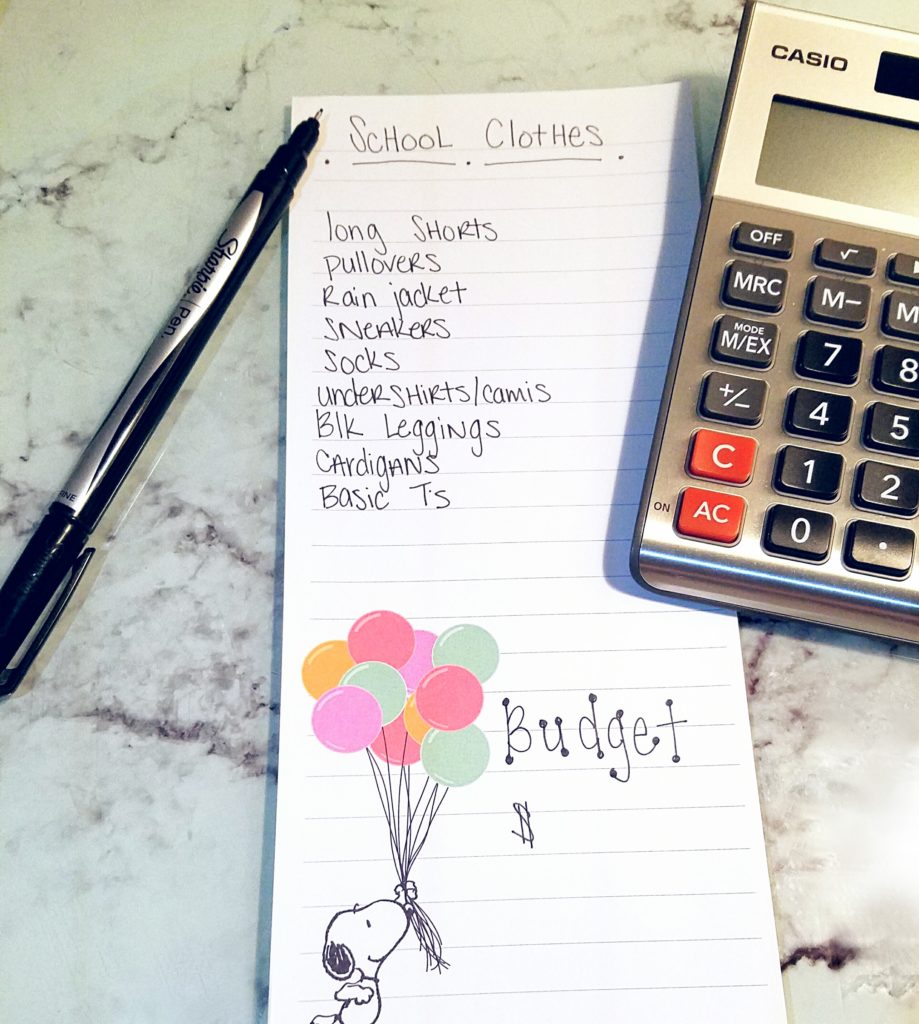 . SCHOOL . Clothes .
long SHORTS
pullovers
Rain jacket
SNEAKERS
Socks
UNDERSHIRTS/camis
Blk LeggiNgS
CARdigANS
Basic T's
Budget
$
Sharpie. Pen.
FINE
CASIO
OFF √
MRC M−
MODE
M/EX 7 8
+/− 4 5
C 1 2
ON AC 0 .